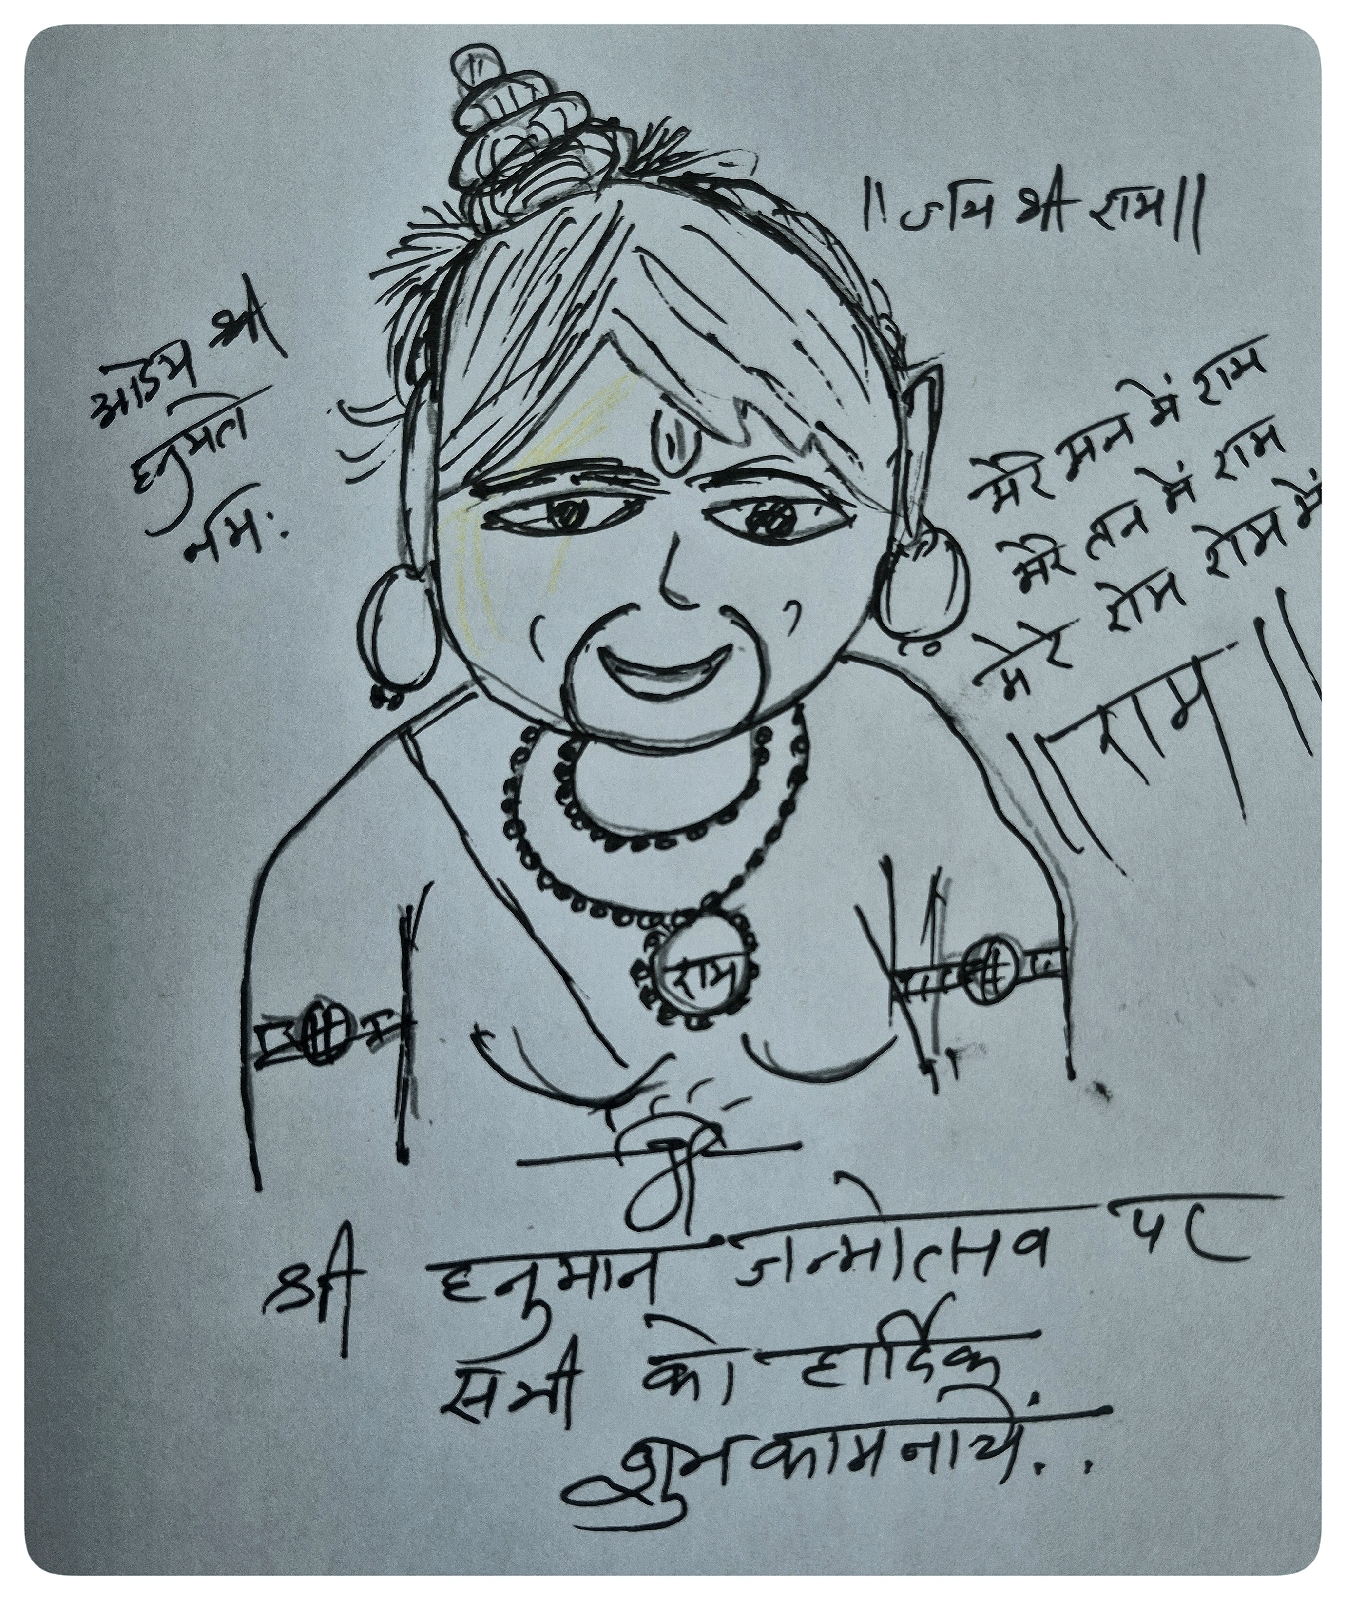 ॥ जय श्री राम ॥
ओडम श्री
हनुमते
नमः
मेरे मन में राम
मेरे तन में राम
मेरे रोम रोम में
॥ राम ॥
राम
श्री हनुमान जन्मोत्सव पर
सभी को हार्दिक
शुभकामनायें..